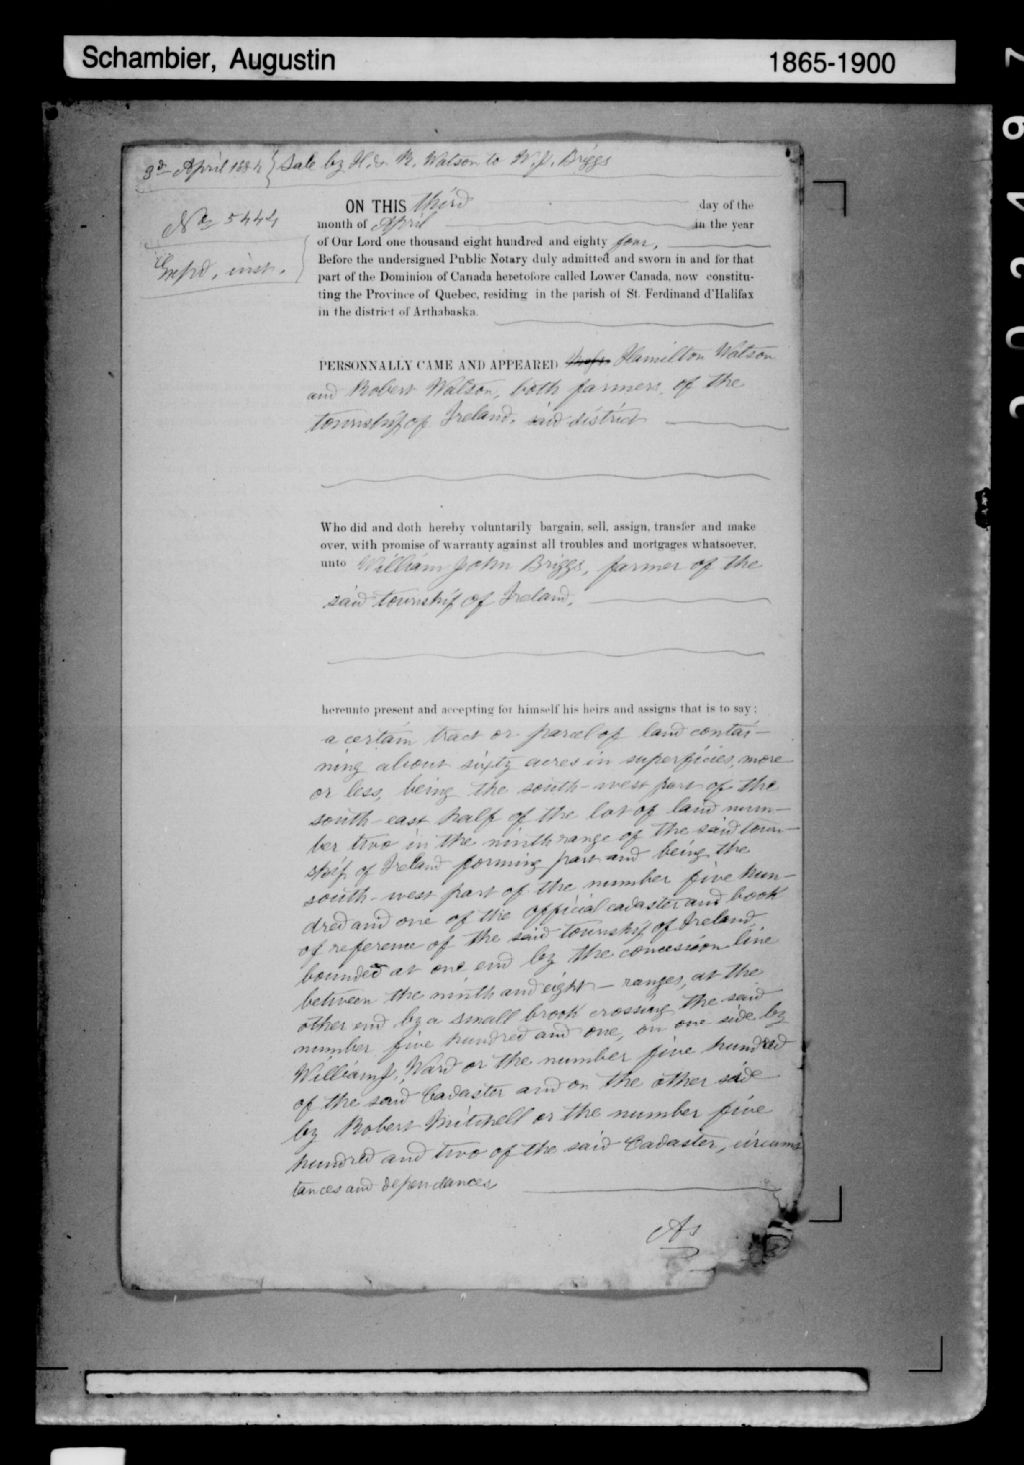 Schambier, Augustin 1865-1900
3d April 1884 } Sale by H. & R. Watson to W. J. Briggs
No 5444
inst.
ON THIS third day of the
month of April in the year
of Our Lord one thousand eight hundred and eighty four,
Before the undersigned Public Notary duly admitted and sworn in and for that
part of the Dominion of Canada heretofore called Lower Canada, now constitu-
ting the Province of Quebec, residing in the parish of St. Ferdinand d'Halifax
in the district of Arthabaska.
PERSONNALLY CAME AND APPEARED Hamilton Watson
and Robert Watson, both farmers, of the
township of Ireland, said district
Who did and doth hereby voluntarily bargain, sell, assign, transfer and make
over, with promise of warranty against all troubles and mortgages whatsoever,
unto William John Briggs, farmer of the
said township of Ireland,
hereunto present and accepting for himself his heirs and assigns that is to say:
a certain tract or parcel of land contai-
ning about sixty acres in superficies, more
or less, being the south-west part of the
south-east half of the lot of land num-
ber two in the ninth range of the said town-
ship of Ireland forming part and being the
south-west part of the number five hun-
dred and one of the official cadaster and book
of reference of the said township of Ireland,
bounded at one end by the concession line
between the ninth and eight ranges, at the
other end by a small brook crossing the said
number five hundred and one, on one side by
William J. Ward or the number five hundred
of the said Cadaster and on the other side
by Robert Mitchell or the number five
hundred and two of the said Cadaster, circums
tances and dependances,
As